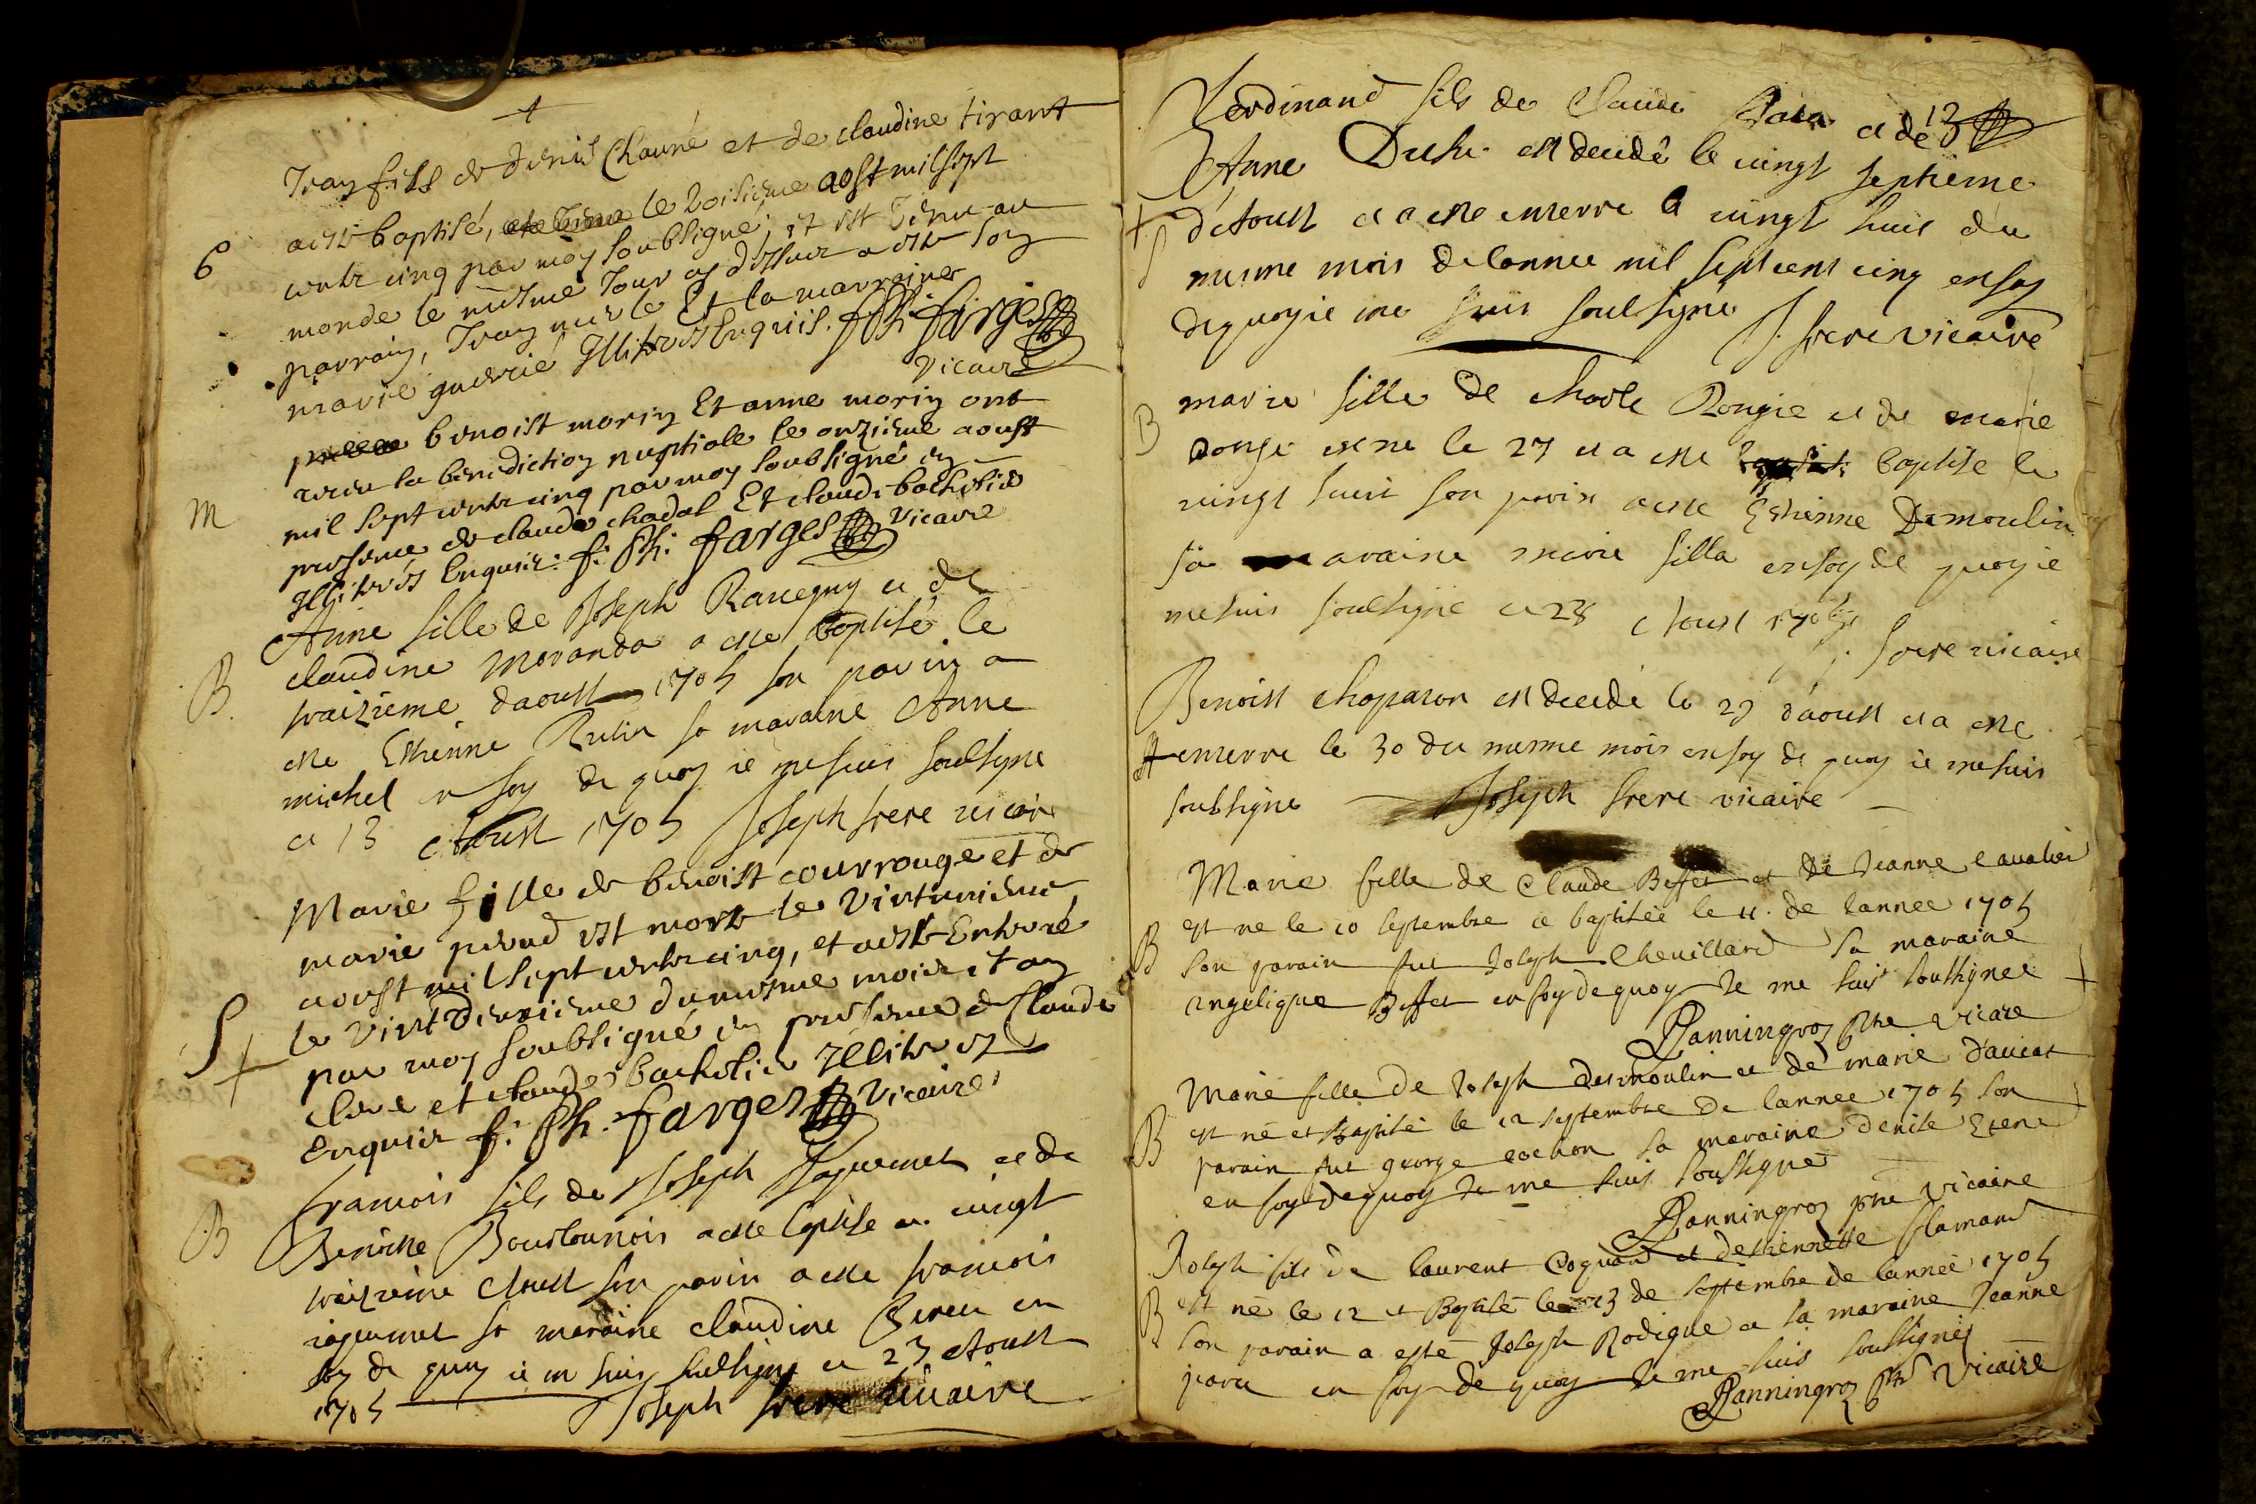 +
Jean fils de denis Chauné et de claudine tirant
aesté baptisé, le troisieme aost mil sept
B
cents cinq par moy soubsigné, et est venu au
monde le mesme Jour cy dessus aesté son
parrain, Jean Et la marraine
marie guerrié Illiterés Enquis. f. Ph: farges
vicaire
benoist morin Et anne morin ont
receu la benediction nuptiale le onzieme aoust
M
mil sept cents cinq par moy soubsigné en
presence de claude chadal Et claude bachelier
Illiterés Enquis: f. Ph: farges vicaire
Anne fille de Joseph et de
claudine Moranda a este baptisé le
B.
traizieme daoust 1705 son parin a
este Estienne sa maraine Anne
michel en foy de quoy ie me suis soubsigne
ce 13 Aoust 1705 Joseph frere vicaire
Marie fille de benoist courrouge et de
marie est morte le vintunieme
aoust mil sept cents cinq, et aesté Enterré
S
le vint deuxieme du mesme mois et an
+
par moy soubsigné en presence de Claude
et claude bachelier Illiterés
Enquis f. Ph. farges vicaire
francois fils de Joseph et de
B
Benoiste Bourbounois a este baptise ce vingt
traizieme Aoust son parin a este francois
sa maraine claudine en
foy de quoy ie me suis soubsigne ce 23 Aoust
1705 Joseph frere vicaire
13
Ferdinand fils de Claude et de
Anne est decedé le vingt septieme
+
d'Aoust et a este enterre le vingt huit du
S
mesme mois de lannee mil sept cent cinq en foy
de quoy ie me suis soubsigné J. frere vicaire
marie fille de charle Rongie et de marie
B
est ne le 27 et a este baptise le
vingt huit son parin a este Estienne Demoulin
sa maraine marie silla en foy de quoy ie
me suis soubsigne ce 28 Aoust 1705
J. frere vicaire
Benoist chaparon est decedé le 29 d'aoust et a este
enterre le 30 du mesme mois en foy de quoy ie me suis
soubsigne Joseph frere vicaire
Marie fille de Claude Beffet et de Jeanne cavalier
est ne le 10 septembre et baptisée le 11. de lannee 1705
B
son parain fut Joseph Chevillard sa maraine
angelique Beffet en foy de quoy Je me suis soussignee +
Panningroz ptre vicare
Marie fille de Joseph desmoulin et de marie
est né et Baptisé le 12 septembre de lannee 1705 son
B
parain fut george cochon sa maraine denise
en foy de quoy Je me suis soussigne
Panningroz ptre vicaire
Joseph fils de laurent Coquard et destiennette flamand
est né le 12 et Baptisé le 13 de septembre de lanneé 1705
B
son parain a esté Joseph Rodigue et sa maraine Jeanne
en foy de quoy Je me suis soussigné
Panningroz ptre vicaire